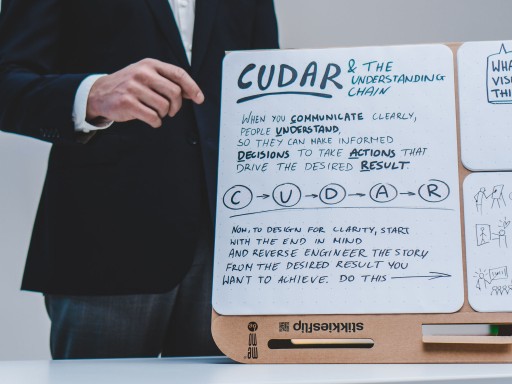 CUDAR & THE
UNDERSTANDING
CHAIN
WHEN YOU COMMUNICATE CLEARLY,
PEOPLE UNDERSTAND,
SO THEY CAN MAKE INFORMED
DECISIONS TO TAKE ACTIONS THAT
DRIVE THE DESIRED RESULT.
C → U → D → A → R
NOW, TO DESIGN FOR CLARITY, START
WITH THE END IN MIND
AND REVERSE ENGINEER THE STORY
FROM THE DESIRED RESULT YOU
WANT TO ACHIEVE. DO THIS
stikkiesflip
WHA
VIS
THI